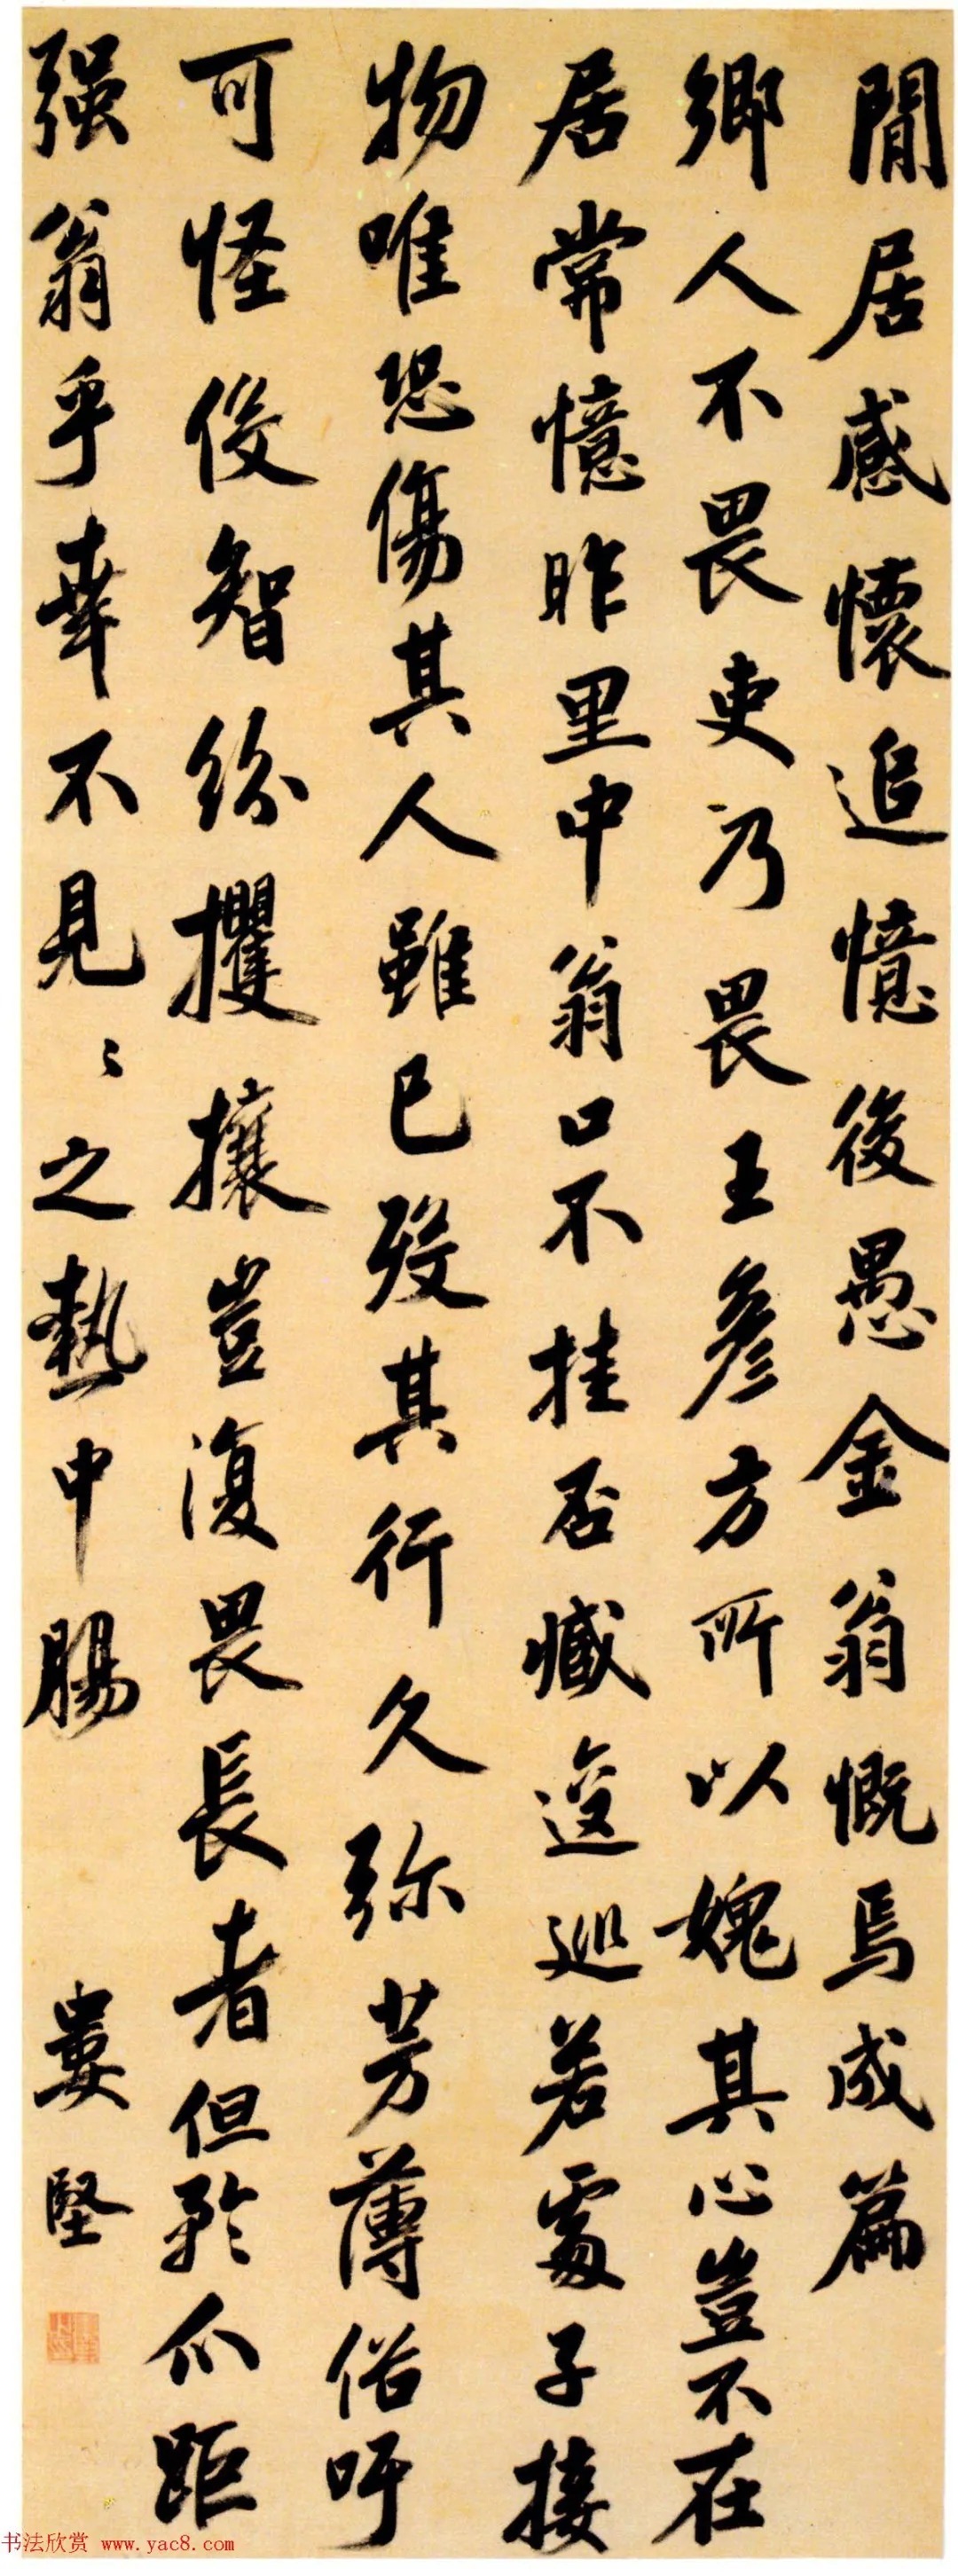 閒居感懷追憶後愚金翁慨焉成篇
鄉人不畏吏乃畏王彥方所以媿其心豈不在
居常憶昨里中翁口不挂否臧逡巡若處子接
物唯恐傷其人雖已歿其行久弥芳薄俗吁
可怪役智紛攫攘豈復畏長者但矜爪距
强翁乎幸不見〻之熱中腸
婁堅
书法欣赏 www.yac8.com